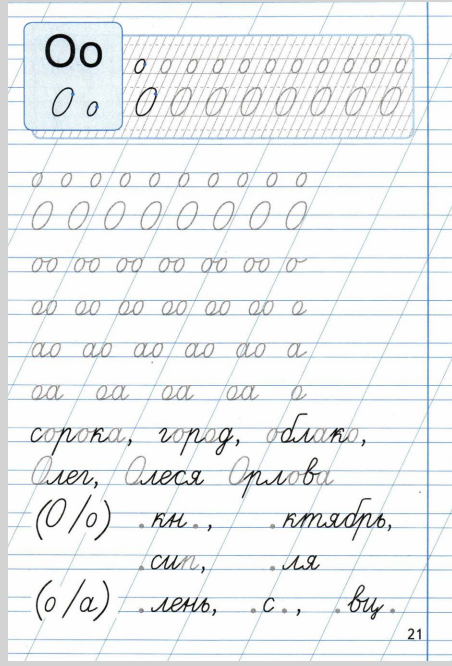 Оо
о о о о о о о о о о о
О о О О О О О О О О
о о о о о о о о о о
О О О О О О О О
оо оо оо оо оо оо о
оо оо оо оо оо оо о
ао ао ао ао ао а
оа оа оа оа о
сорока, город, облако,
Олег, Олеся Орлова
(О/о) .кн., .ктябрь,
.сип, .ля
(о/а) .лень, .с., .вц.
21